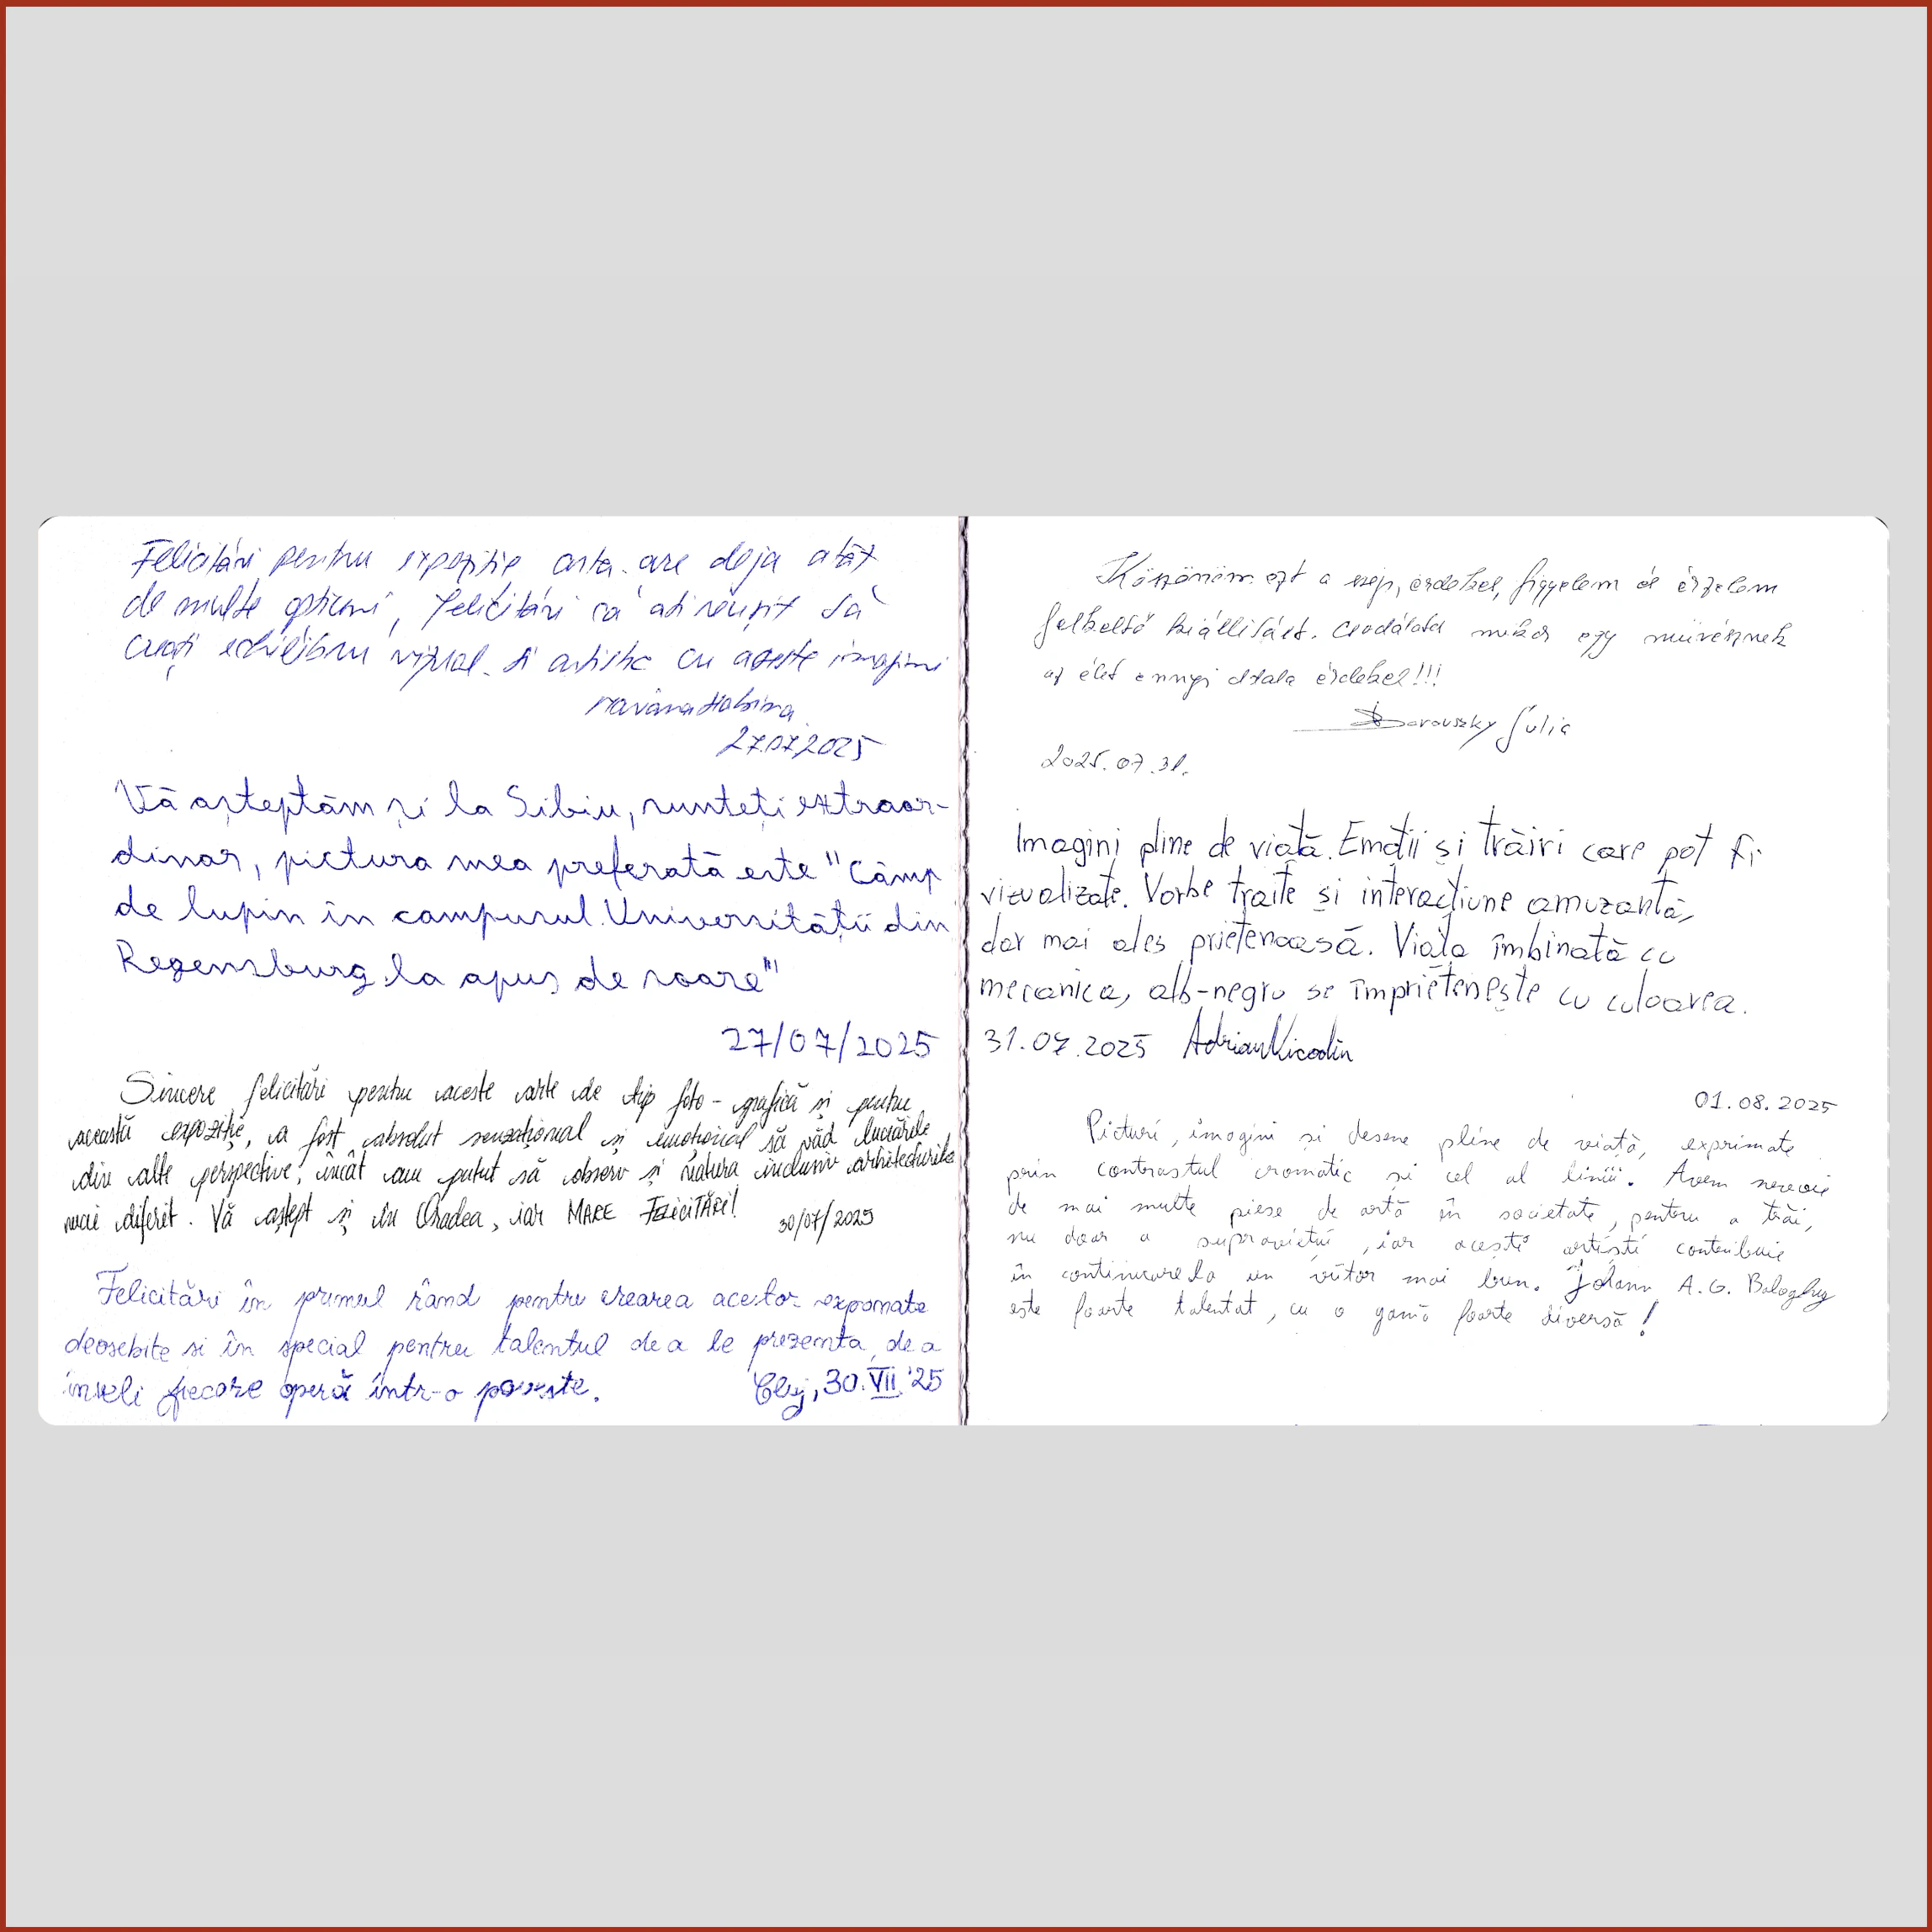 Felicitări pentru expoziție arta are deja atât
de multe opțiuni, felicitări că ați reușit să
creați echilibru vizual și artistic cu aceste imagini
27.07.2025
Vă așteptăm și la Sibiu, sunteți extraor-
dinar, pictura mea preferată este "Câmp
de lupin în campusul Universității din
Regensburg la apus de soare"
27/07/2025
Sincere felicitări pentru aceste arte de tip foto-grafică și pentru
această expoziție, a fost absolut senzațional și emoțional să văd lucrările
din alte perspective, încât am putut să observ și natura inclusiv arhitecturile
mai diferit. Vă aștept și în Oradea, iar MARE FELICITĂRI! 30/07/2025
Felicitări în primul rând pentru crearea acestor exponate
deosebite si în special pentru talentul de a le prezenta, de a
înveli fiecare operă într-o poveste. Cluj, 30.VII.'25
Köszönöm ezt a szép, érdekes, figyelem és érzelem
felkeltő kiállítást. Csodálatos mikor egy művésznek
az élet ennyi oldala érdekel!!!
Borovszky Júlia
2025.07.31.
Imagini pline de viață. Emoții și trăiri care pot fi
vizualizate. Vorbe traite și interacțiune amuzantă,
dar mai ales prietenoasă. Viața îmbinată cu
mecanica, alb-negru se împrietenește cu culoarea.
31.07.2025 Adrian Nicodin
01.08.2025
Picturi, imagini și desene pline de viață, exprimate
prin contrastul cromatic și cel al liniii. Avem nevoie
de mai multe piese de artă în societate, pentru a trăi,
nu doar a supraviețui, iar acești artiști contribuie
în continuare la un viitor mai bun. Johann A.G. Baloghy
este foarte talentat, cu o gamă foarte diversă!